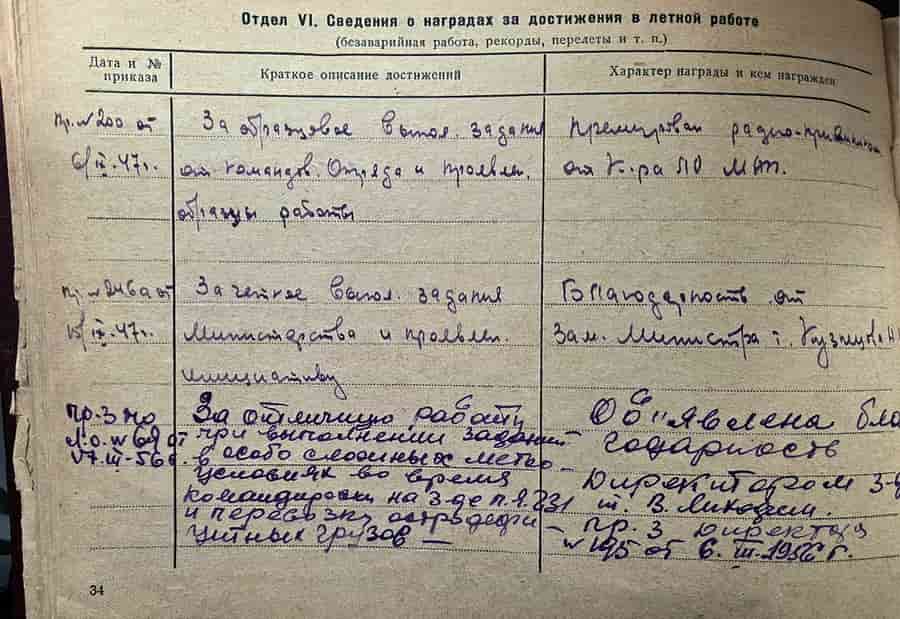 Отдел VI. Сведения о наградах за достижения в летной работе
(безаварийная работа, рекорды, перелеты и т. п.)
Дата и № приказа
Краткое описание достижений
Характер награды и кем награжден
Пр. № 200 от
6/IX-47г.
За образцовое выпол. задания
от командов. Отряда и проявлен.
образцы работы
Премирован радио-приемником
от К-ра ЛО МАП.
Пр № 246а от
/IX-47г.
За четкое выпол. задания
Министерства и проявлен.
инициативу
Благодарность от
Зам. Министра т. Кузнецова
пр. З по
Л.О. № 69 от
7.III-56г.
За отличную работу
при выполнении заданий
в особо сложных метео-
условиях во время
командировки на З-де п.я. 231
и перевозку острадефи-
цитных грузов —
Об"явлена бла
годарность
Директором З-
т. В.
— пр. З Директора
№ 195 от 6.III-1956г.
34